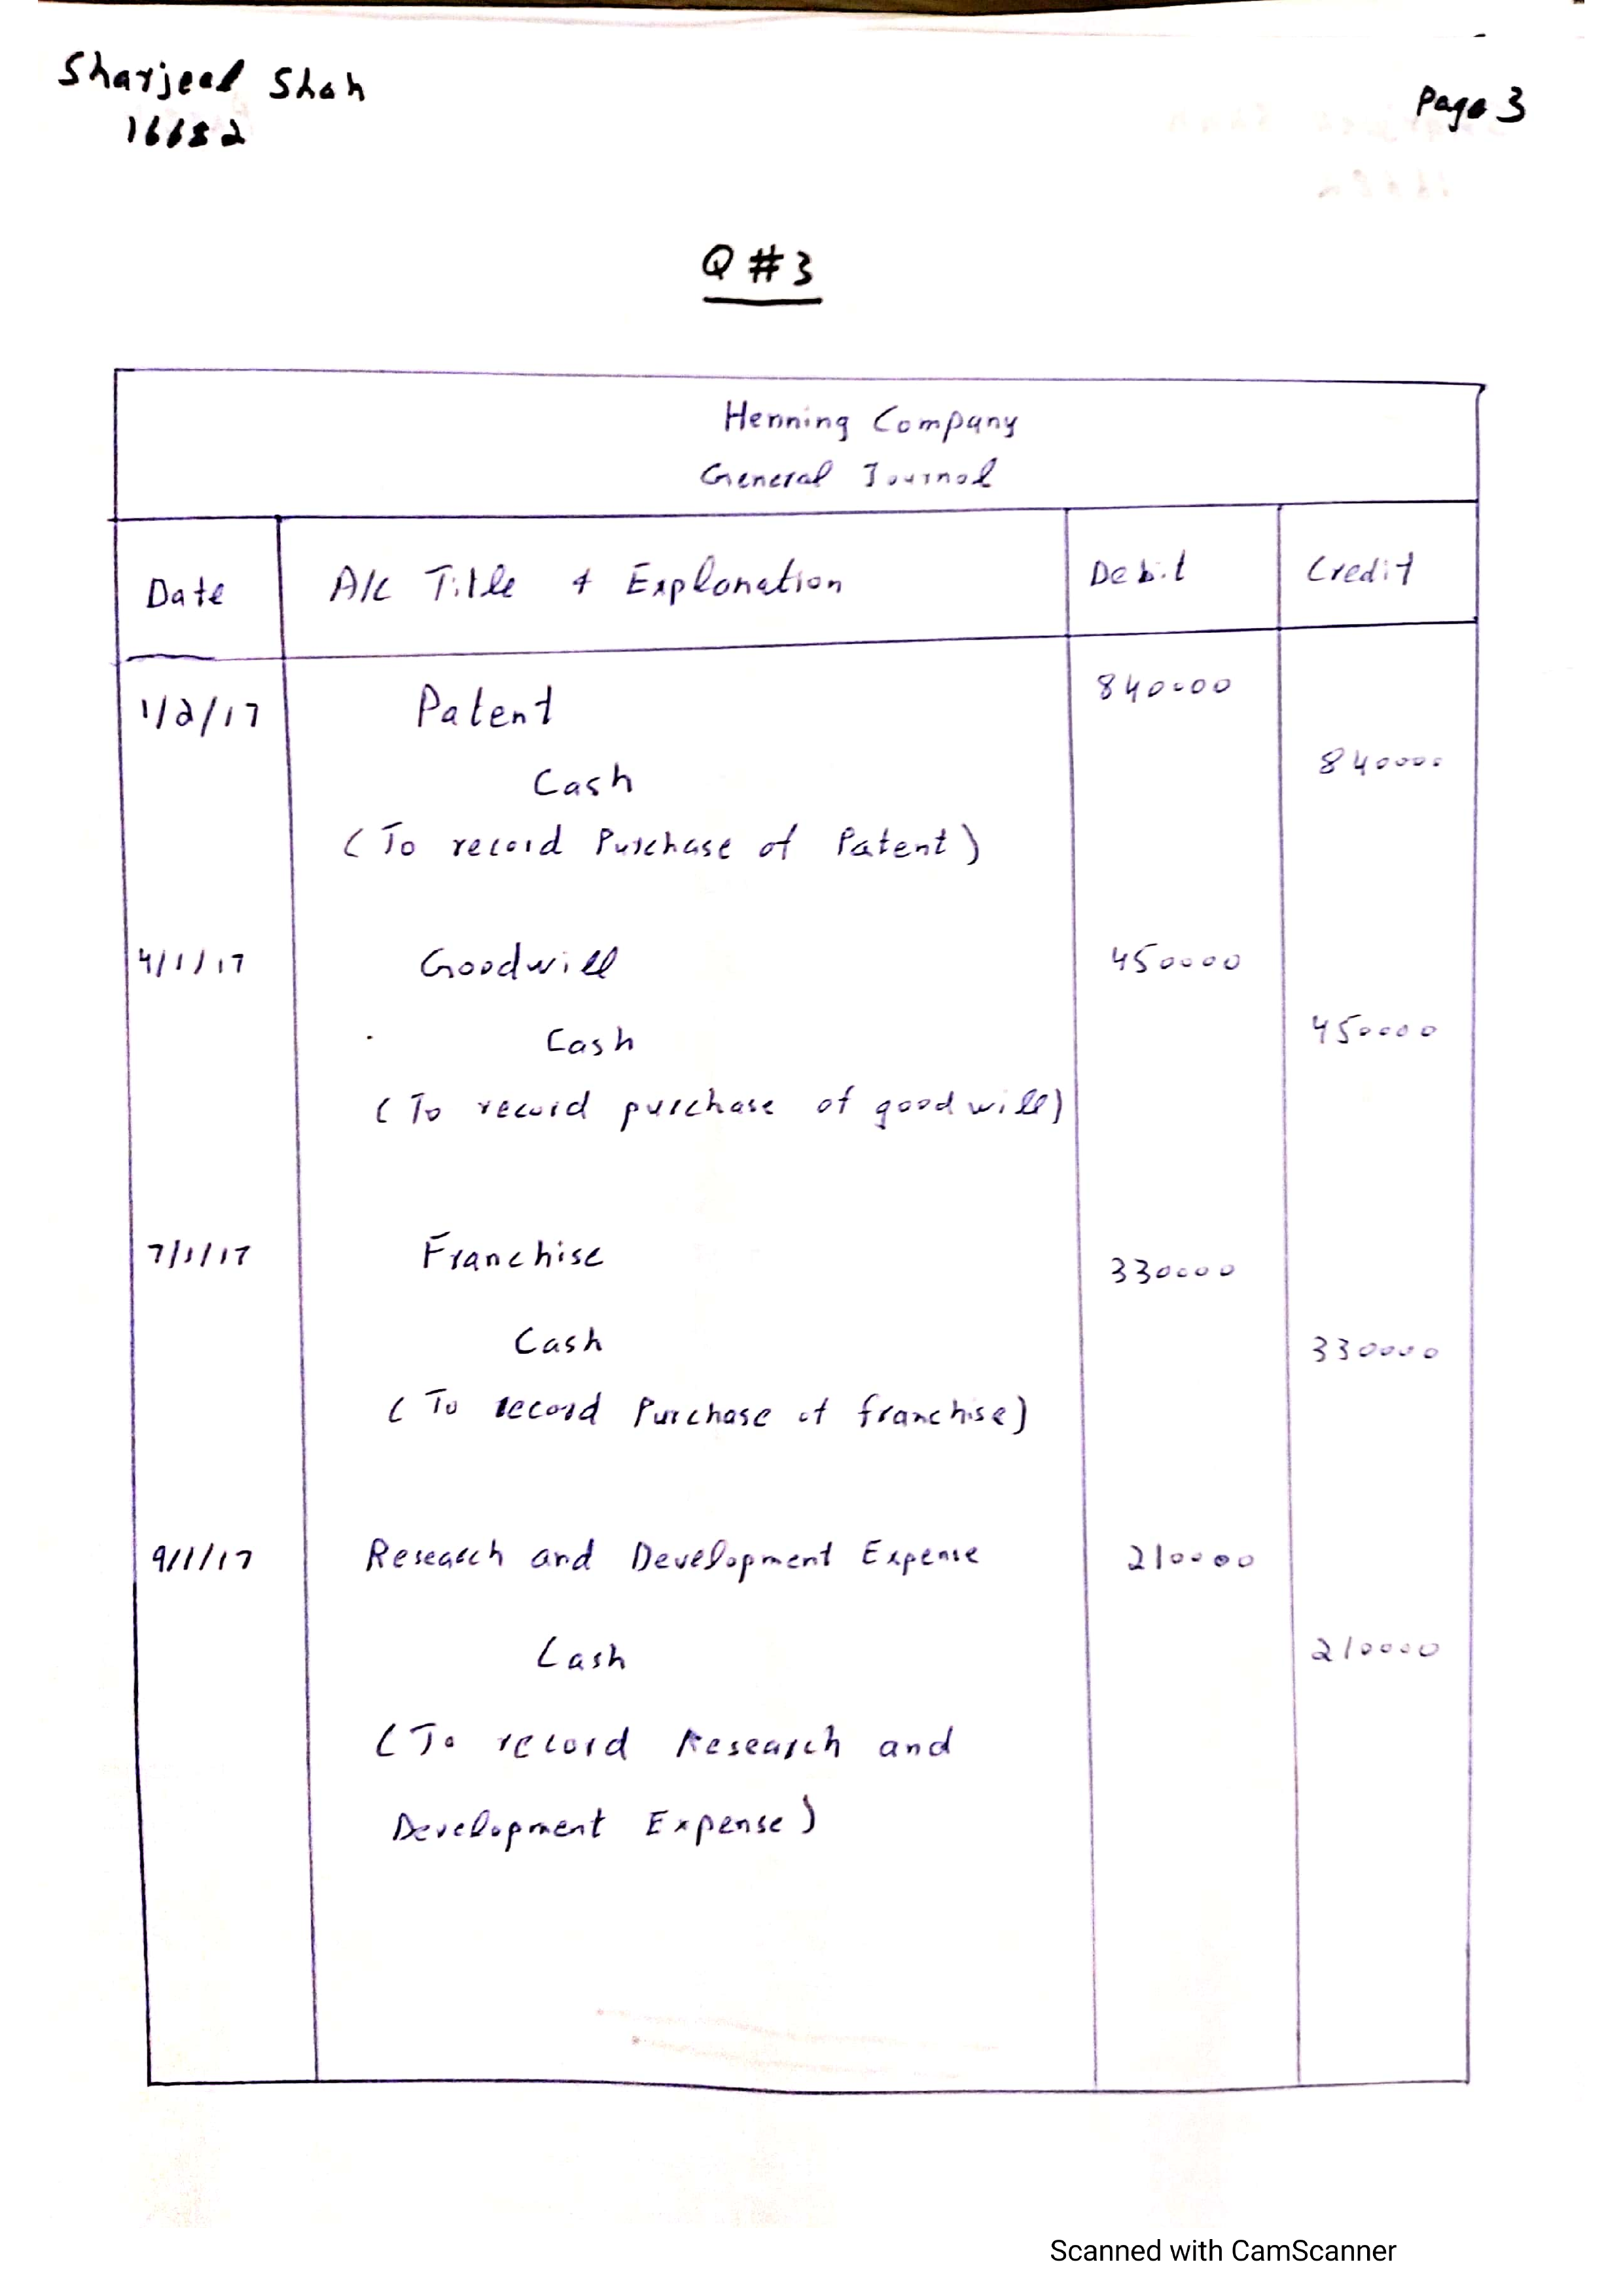 Sharjeel Shah
16682
Page 3
Q #3
Henning Company
General Journal
Date A/c Title & Explanation Debit Credit
1/2/17 Patent 840000
Cash 840000
(To record Purchase of Patent)
4/1/17 Goodwill 450000
Cash 450000
(To record purchase of goodwill)
7/1/17 Franchise 330000
Cash 330000
(To record Purchase of franchise)
9/1/17 Research and Development Expense 210000
Cash 210000
(To record Research and
Development Expense)
Scanned with CamScanner